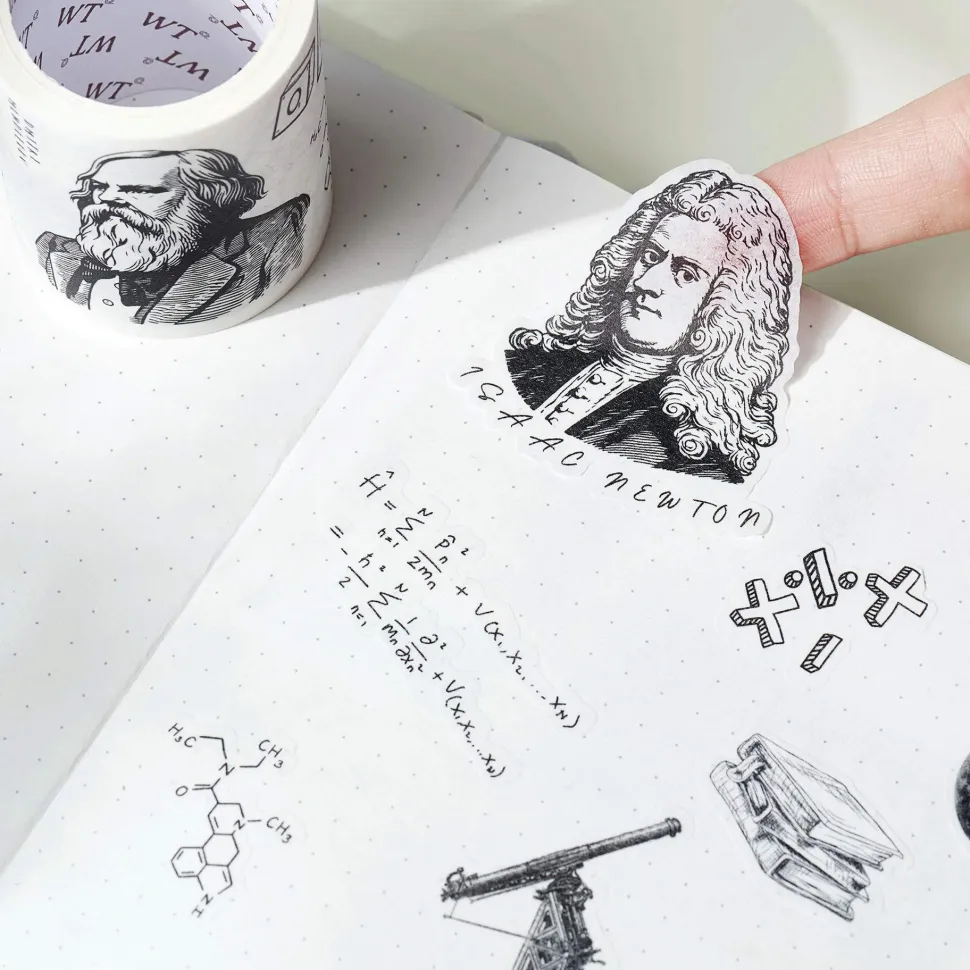 WT WT WT
WT WT
WT
ISAAC NEWTON
Ĥ = ∑ₙ₌₁ᴺ p̂ₙ²/2mₙ + V(x₁, x₂, ... xₙ)
= -ħ²/2 ∑ₙ₌₁ᴺ 1/mₙ ∂²/∂xₙ² + V(x₁, x₂, ... xₙ)
H₃C
CH₃
N
O
N CH₃
HN